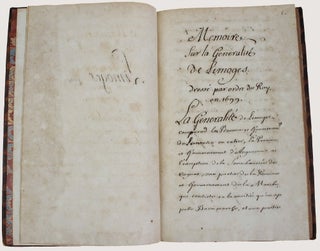 Limoges
Memoire
Sur la Generalité
De Limoges,
dressé par ordre du Roy
en 1699
La Generalité de Limoges
comprend la Province et Gouvernement
de Limosin en entier, la Province
et Gouvernement d'Angoumois
exception de
Cognac, une partie de la Province
et Gouvernement de la Marche,
qui consiste en
et une partie